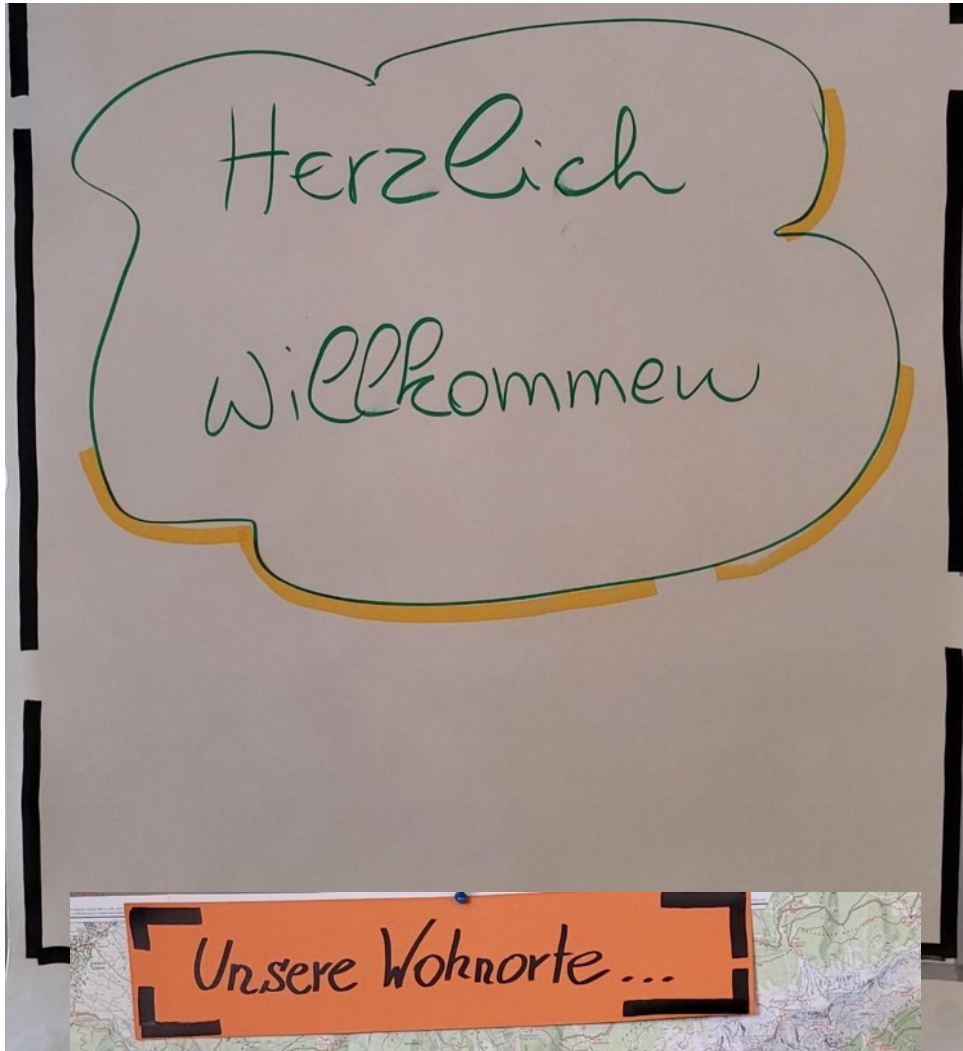 Herzlich
willkommen
Unsere Wohnorte...